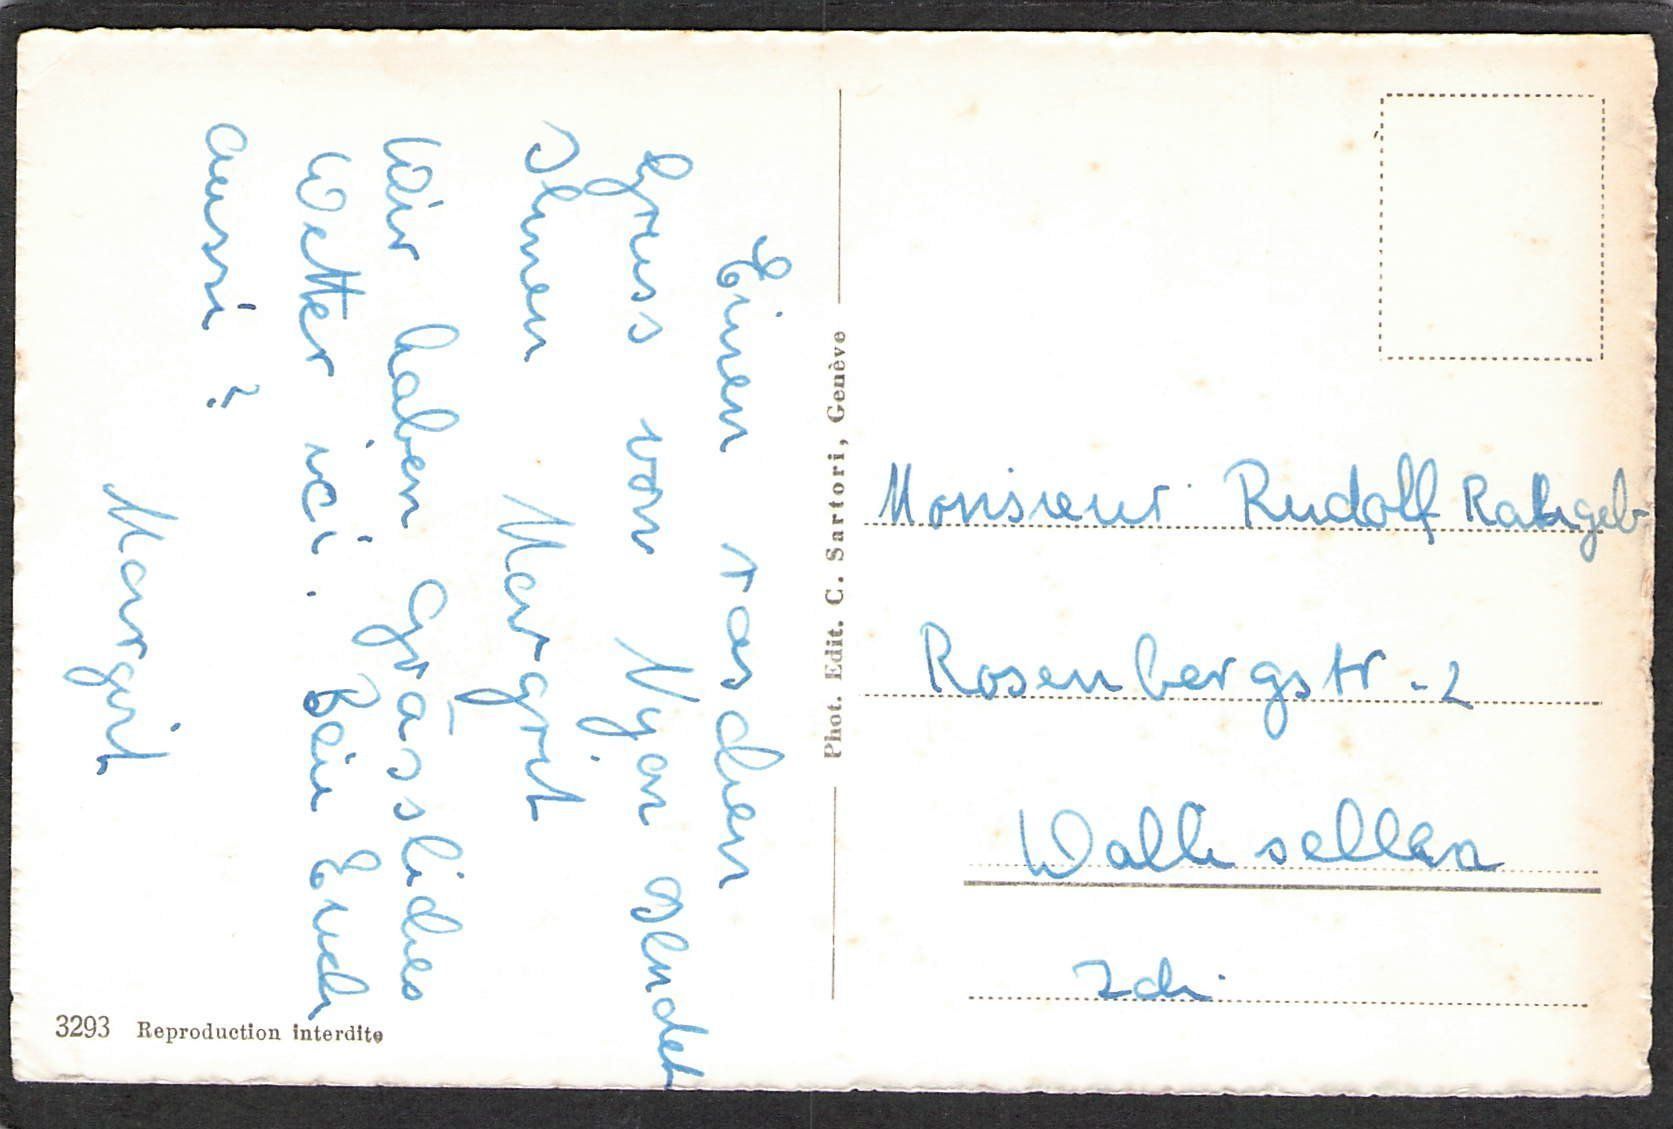 Einen raschen
Gruss von Nyon sendet
Ihnen Margrit
Wir haben grässliches
Wetter ici. Bei Euch
aussi?
Margrit
Phot. Edit. C. Sartori, Genève
Monsieur Rudolf Rathgeb
Rosenbergstr. 2
Wallisellen
Zch.
3293 Reproduction interdite